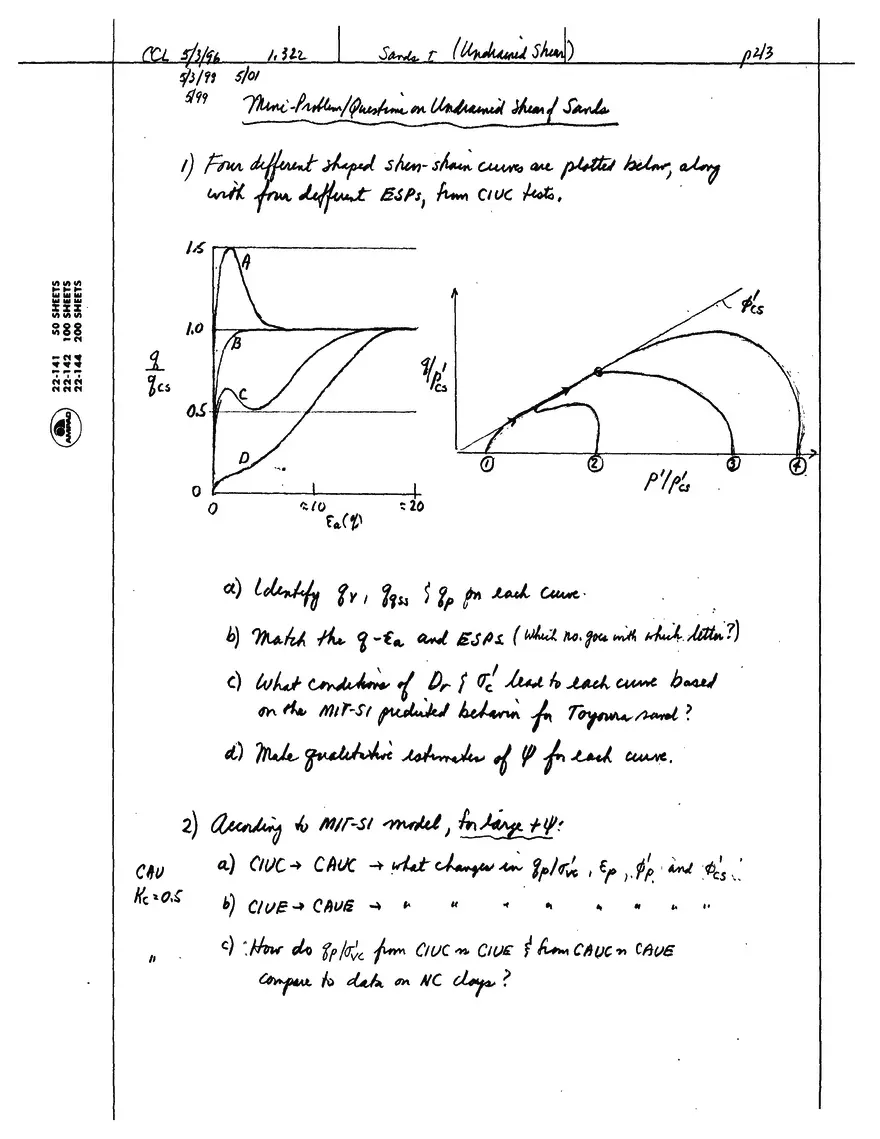 CCL 5/3/96 1.322 Sands I (Undrained Shear) p2/3
5/3/99 5/01
5/99
Mini-Problem/Questions on Undrained Shear of Sands
1) Four different shaped stress-strain curves are plotted below, along
with four different ESPs, from CIUC tests.
22-141 50 SHEETS
22-142 100 SHEETS
22-144 200 SHEETS
AMPAD
1.5
A
1.0
B
q/qcs
C
0.5
D
0
0 ≈10 ≈20
εa(%)
φ'cs
q/p'cs
1 2 3 4
p'/p'cs
a) Identify qY, qqss & qp on each curve.
b) Match the q-εa and ESPs (Which no. goes with which letter?)
c) What conditions of Dr & σ'c lead to each curve based
on the MIT-S1 predicted behavior for Toyoura sand?
d) Make qualitative estimates of ψ for each curve.
2) According to MIT-S1 model, for large +ψ:
CAU
Kc=0.5
a) CIUC → CAUC → what changes in qp/σ'vc, εp, φ'p and φ'cs
b) CIUE → CAUE → " " " " " " " "
" c) How do qp/σ'vc from CIUC vs CIUE & from CAUC vs CAUE
compare to data on NC clays?